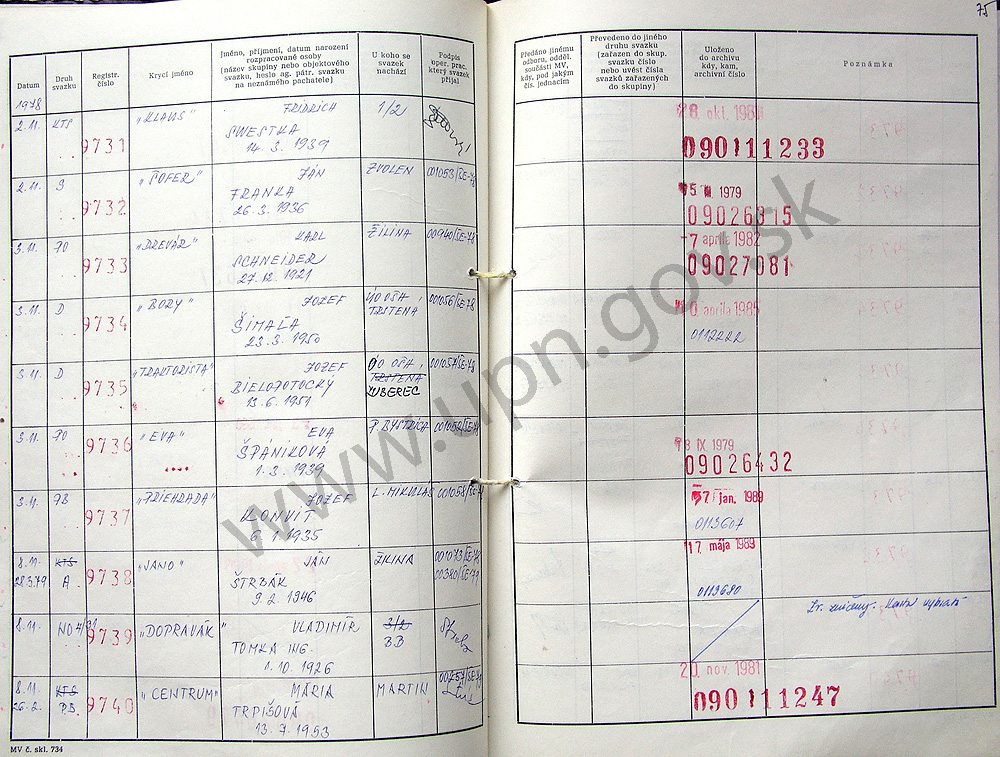 75
Datum
Druh svazku
Registr. číslo
Krycí jméno
Jméno, příjmení, datum narození
rozpracované osoby
(název skupiny nebo objektového
svazku, heslo ag. pátr. svazku
na neznámého pachatele)
U koho se
svazek
nachází
Podpis
oper. prac.
který svazek
přijal
Předáno jinému
odboru, odděl.
součásti MV,
kdy, pod jakým
čís. jednacím
Převedeno do jiného
druhu svazku
(zařazen do skup.
svazku číslo
nebo uvést čísla
svazků zařazených
do skupiny)
Uloženo
do archivu
kdy, kam,
archivní číslo
Poznámka
1978
2.11. KTS 9731 "KLAUS" FRIDRICH 1/2
SWESTKA
14. 3. 1939
090111233
2.11. 9732 "ŠOFER" JÁN ZVOLEN
FRANKA
26. 3. 1936
1979
09026315
3.11. PO 9733 "DREVÁR" KARL ŽILINA
SCHNEIDER
27. 12. 1921
7 apríla 1982
09027081
3.11. D 9734 "BORY" JOZEF OO OŠA, TRSTENA
ŠIMAĽA
23. 3. 1950
apríla 1985
0112222
3.11. D 9735 "TRAKTORISTA" JOZEF OO OŠA, TRSTENA ZUBEREC
BIELOPOTOCKY
13. 6. 1951
3.11. PO 9736 "EVA" EVA P. BYSTRICA
ŠPÁNIKOVÁ
1. 3. 1939
IX 1979
09026432
3.11. PB 9737 "PRIEHRADA" JOZEF L. MIKULÁŠ
KONVIT
6. 1. 1935
jan. 1989
0113607
8.11. KTS 9738 "JANO" JÁN ŽILINA
28.3.79 A ŠTRBÁK
9. 2. 1946
17. mája 1989
0113680
8.11. 9739 "DOPRAVÁK" VLADIMÍR 3/2
TOMKA ING. BB
1. 10. 1926
8.11. KTS 9740 "CENTRUM" MÁRIA MARTIN
PB TRPIŠOVÁ
13. 7. 1953
20. nov. 1981
090111247
MV č. skl. 734
www.upn.gov.sk